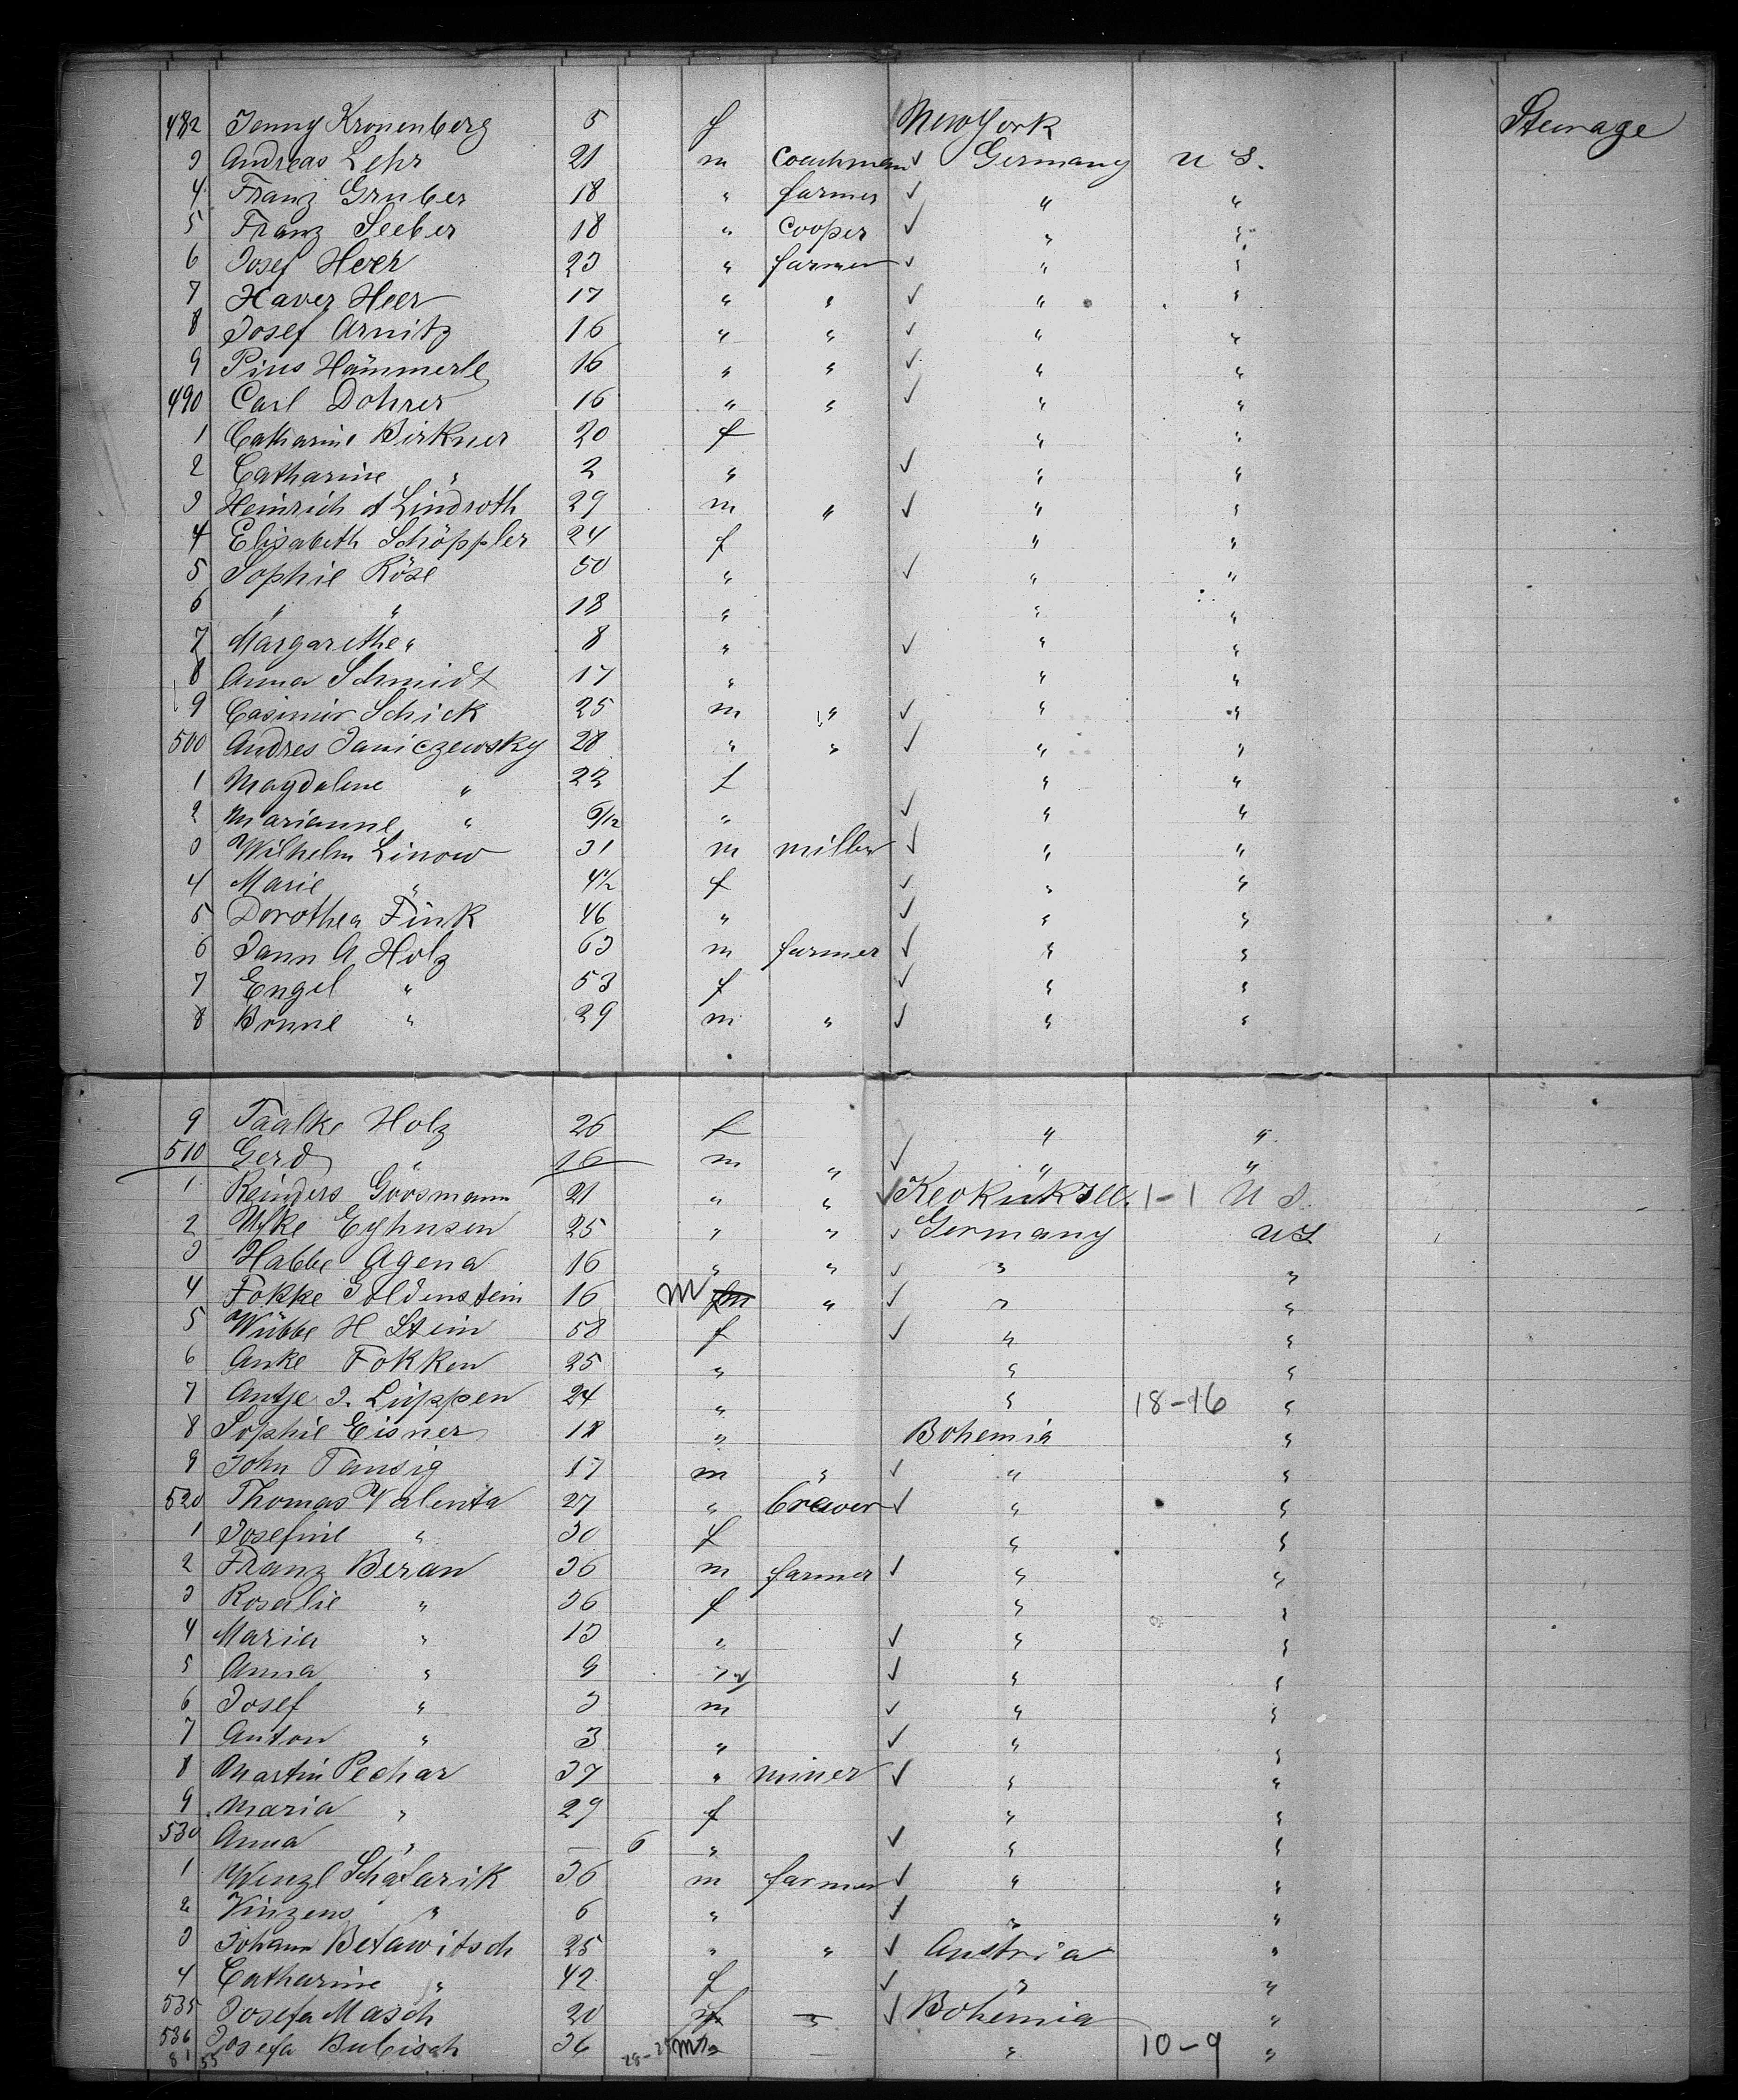 482 Jenny Kronenberg 5 f New York Steerage
3 Andreas Lehr 21 m Coachman ✓ Germany U S.
4 Franz Gruber 18 " farmer ✓ " "
5 Franz Seeber 18 " Cooper ✓ " "
6 Josef Heer 23 " farmer ✓ " "
7 Xaver Heer 17 " " ✓ " "
8 Josef Arnitz 16 " " ✓ " "
9 Pius Hämmerle 16 " " ✓ " "
490 Carl Dohrer 16 " " ✓ " "
1 Catharine Birkner 20 f " "
2 Catharine " 2 " ✓ " "
3 Heinrich A Lindroth 29 m " ✓ " "
4 Elisabeth Schöppler 24 f " "
5 Sophie Röse 50 " ✓ " "
6 " " 18 " " "
7 Margarethe " 8 " ✓ " "
8 Anna Schmidt 17 " " "
9 Casimir Schick 25 m " ✓ " "
500 Andres Janiczewsky 28 " " ✓ " "
1 Magdalene " 22 f " "
2 Marianne " 6/12 " ✓ " "
3 Wilhelm Linow 31 m miller ✓ " "
4 Marie " 4½ f ✓ " "
5 Dorothea Fink 46 " ✓ " "
6 Jann A Holz 63 m farmer ✓ " "
7 Engel " 53 f ✓ " "
8 Brune " 29 m " ✓ " "
9 Taalke Holz 26 f " "
510 Gerd " 16 m " ✓ " "
1 Reinders Goosmann 21 " " ✓ Keokuk Ill. 1-1 U S.
2 Ufke Eyhusen 25 " " ✓ Germany U S
3 Habbe Agena 16 " " ✓ " "
4 Fokke Goldenstein 16 M " ✓ " "
5 Wübbe H Stein 58 f ✓ " "
6 Anke Fokken 25 " " "
7 Antje J. Lüppen 24 " " 18-16 "
8 Sophie Eisner 18 " Bohemia "
9 John Tausig 17 m " ✓ " "
520 Thomas Valenta 27 " brewer ✓ " "
1 Josefine " 30 f " "
2 Franz Beran 36 m farmer ✓ " "
3 Rosalie " 36 f " "
4 Maria " 13 " ✓ " "
5 Anna " 9 " ✓ " "
6 Josef " 3 m ✓ " "
7 Anton " 3 " ✓ " "
8 Martin Pechar 37 " miner ✓ " "
9 Maria " 29 f " "
530 Anna " — 6 " ✓ " "
1 Wenzl Schafarik 36 m farmer ✓ " "
2 Vinzens " 6 " ✓ " "
3 Johann Betawitsch 25 " " ✓ Austria "
4 Catharine " 42 f ✓ " "
535 Josefa Masch 20 f " ✓ Bohemia "
536 Josefa Bubisch 36 m — " 10-9 "
81 55